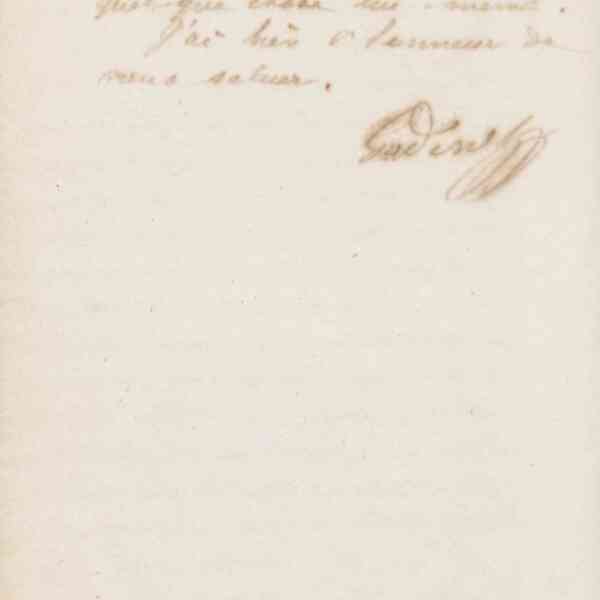 quelque chose lui-même.
J'ai bien l'honneur de
vous saluer.